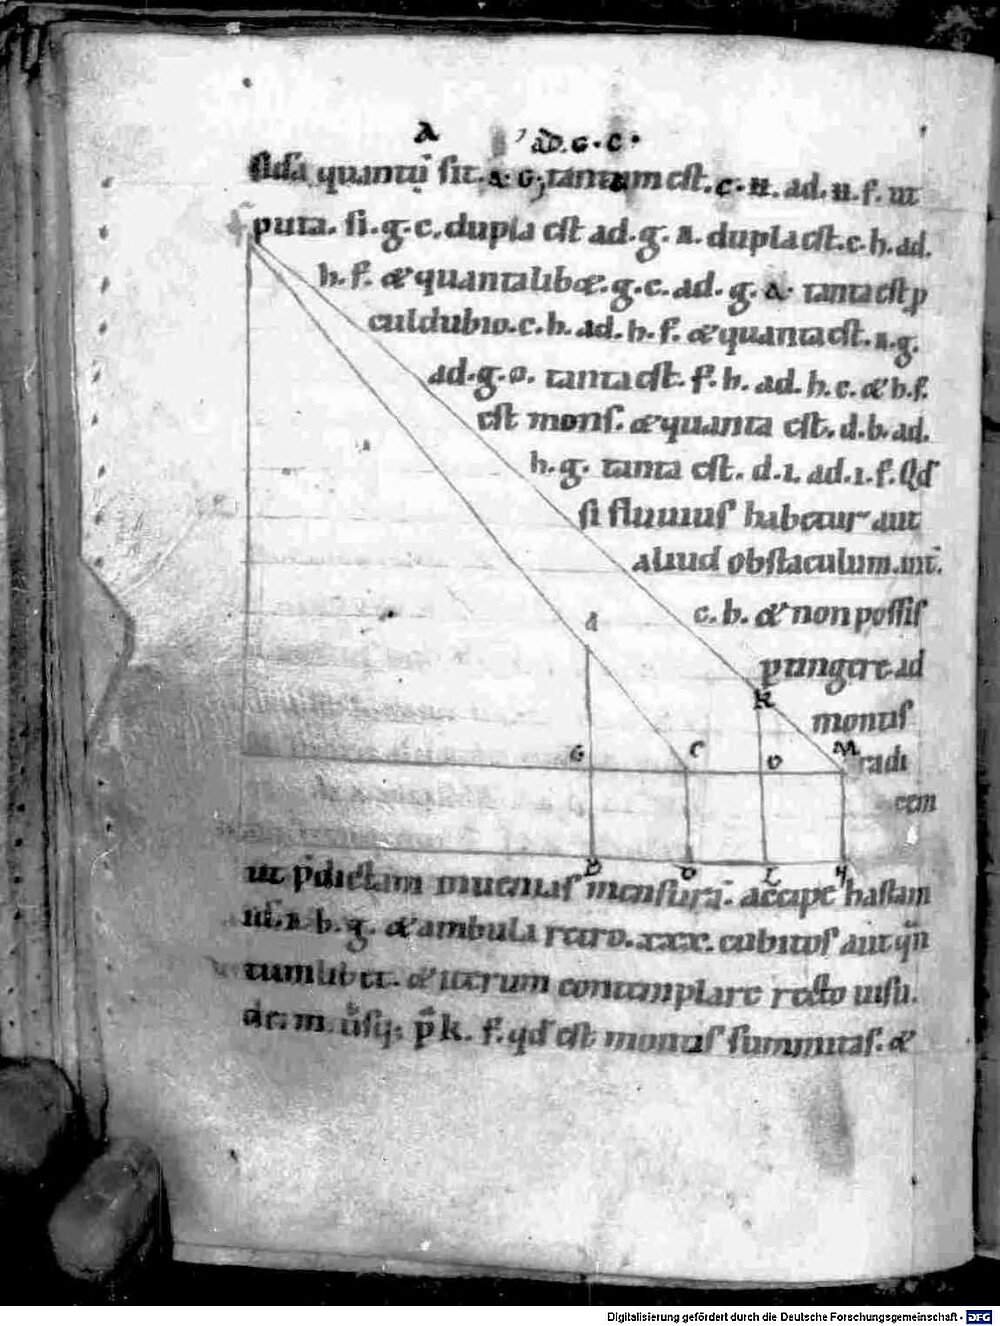 A ad.G.C.
quantū sit.A.G. tantum est.c.H.ad.H.f. ut
puta. si.g.c.dupla est ad.g.a.dupla est.c.h.ad.
h.f. & quantalib&.g.c.ad.g.A. tanta est p
culdubio.c.h.ad.h.f. & quanta est.a.g.
ad.g.o. tanta est.f.h.ad.h.c. & h.f.
est mons. & quanta est.d.b.ad.
h.g. tanta est.d.i.ad.i.f. Qd
si fluuius habetur aut
aliud obstaculum.int̄.
c.b. & non possis
ptingere ad
A
K
montis
G C O M radi
cem
B D L H
ut p̄dictam inuenias mensurā. accipe hastam
id.a.b.g. & ambula retro.xxx.cubitos aut qn̄
tumlibet. & iterum contemplare recto uisu.
de.m.usq; p k. f.qd est montis summitas. &
Digitalisierung gefördert durch die Deutsche Forschungsgemeinschaft - DFG